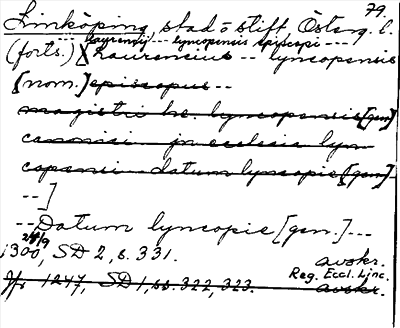 79
Linköping stad o stift Östang. l.
--- laurencij -- lyncopensis episcopi ---
(forts.) [Laurencius -- lyncopensis
[nom.] episcopus --
magistri he. lyncopensis [gen]
canonici jn ecclesia lyn
copensi datum lyncopie [gen].
--]
--- Datum lyncopie [gen.] ---
24/9
1300, SD 2, s. 331. avskr.
Reg. Eccl. Linc.
Jfr 1247, SD 1, ss. 322, 323. avskr.